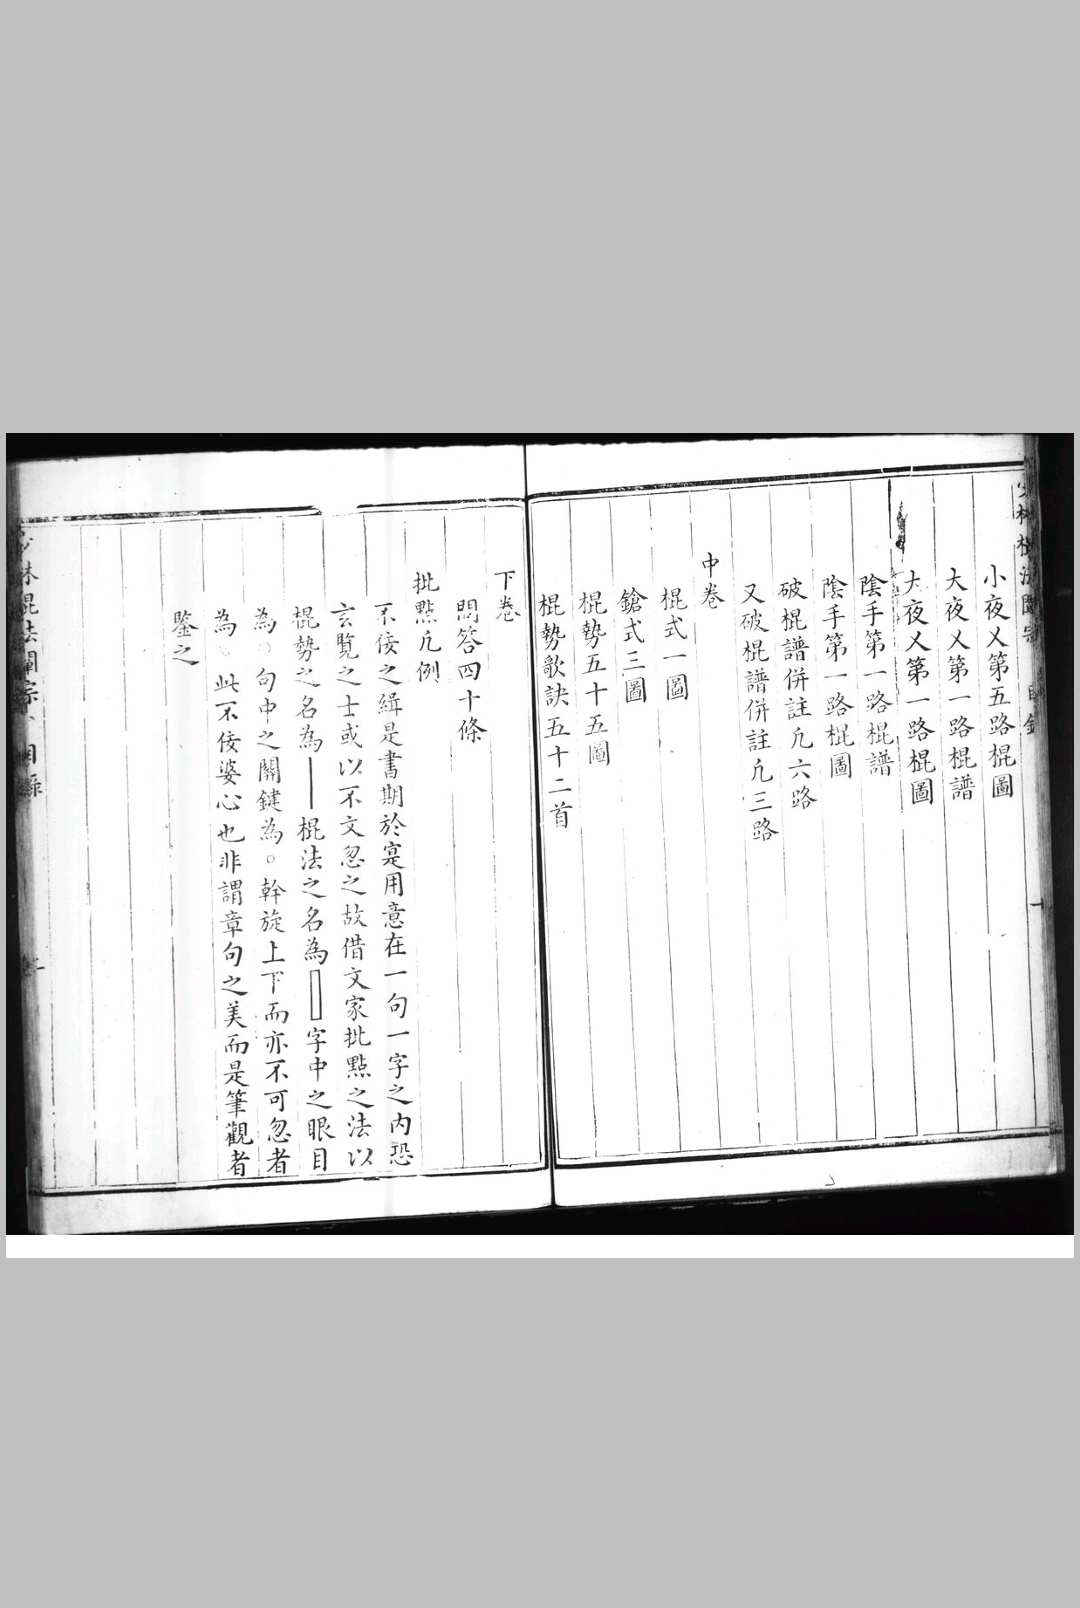 少林棍法闡宗 目錄 一
小夜乂第五路棍圖
大夜乂第一路棍譜
大夜乂第一路棍圖
陰手第一路棍譜
陰手第一路棍圖
破棍譜併註凢六路
又破棍譜併註凢三路
中卷
棍式一圖
鎗式三圖
棍勢五十五圖
棍勢歌訣五十二首
下卷
問答四十條
批點凢例
不佞之緝是書期於寔用意在一句一字之內恐
玄覽之士或以不文忽之故借文家批點之法以
棍勢之名為 棍法之名為 字中之眼目
為 句中之關鍵為○幹旋上下而亦不可忽者
為 此不佞婆心也非謂章句之美而是筆觀者
鑒之
少林棍法闡宗 目錄